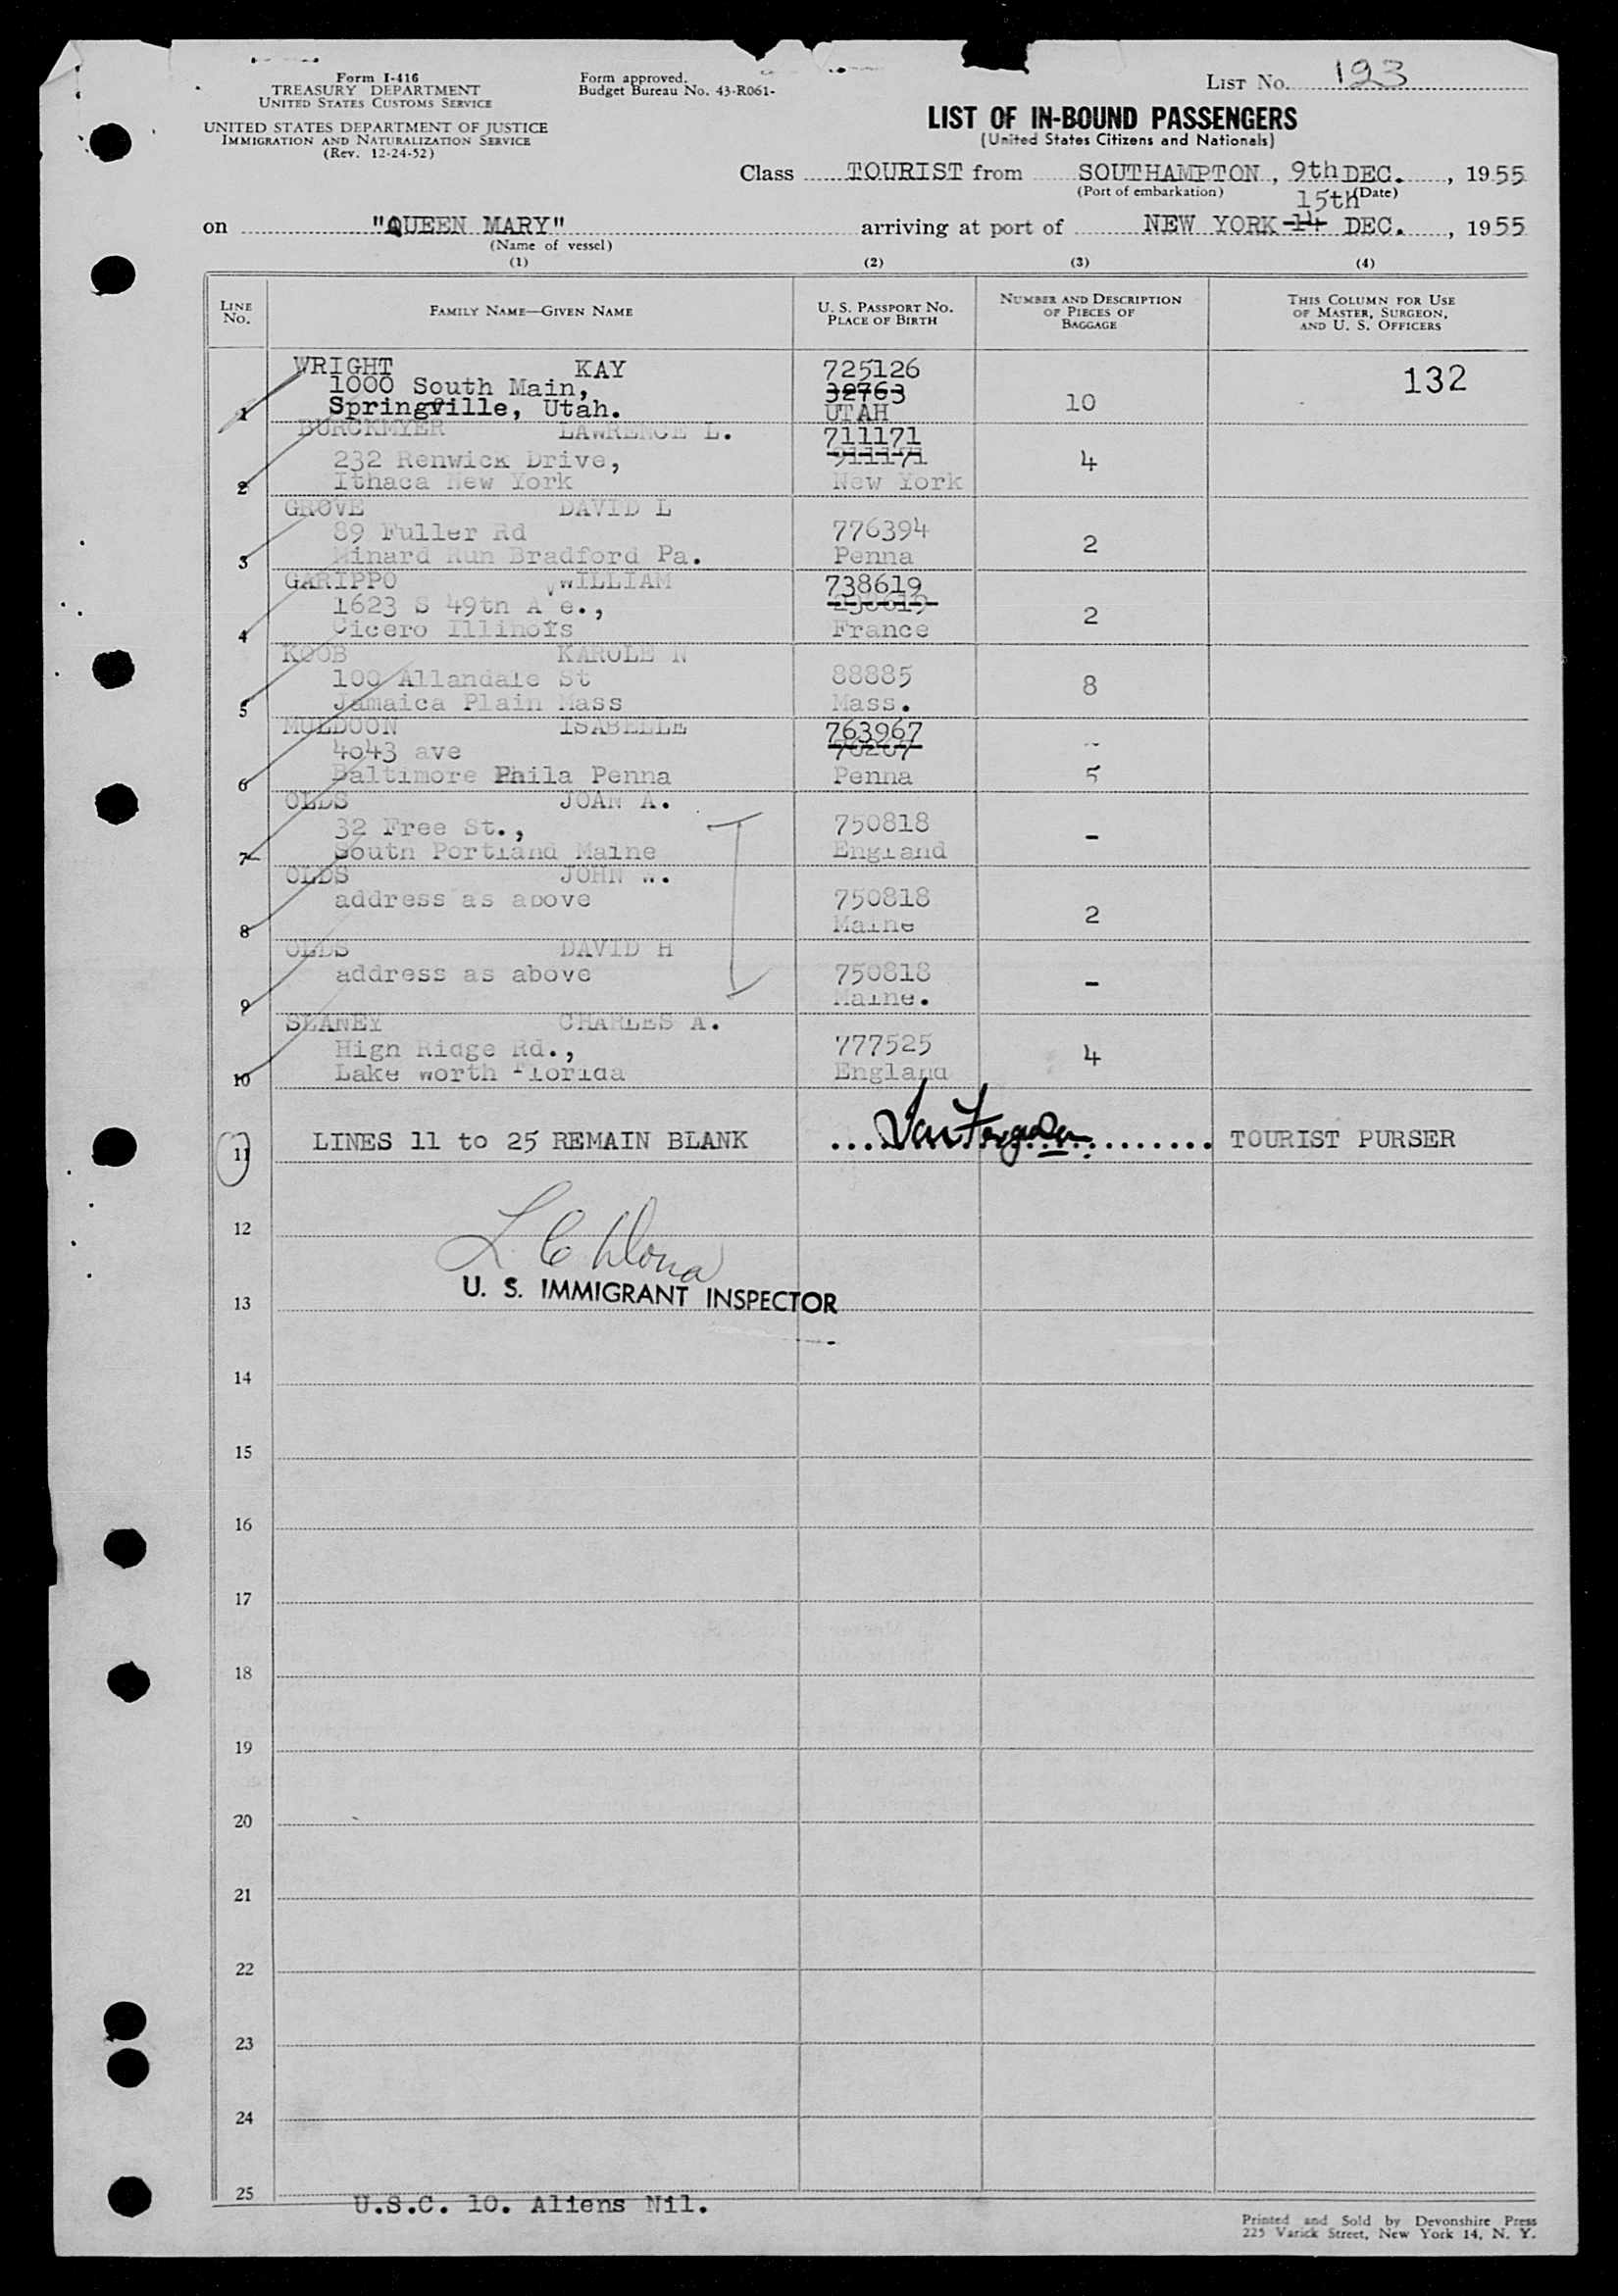 Form I-416
TREASURY DEPARTMENT
UNITED STATES CUSTOMS SERVICE
UNITED STATES DEPARTMENT OF JUSTICE
IMMIGRATION AND NATURALIZATION SERVICE
(Rev. 12-24-52)
Form approved.
Budget Bureau No. 43-R061-
LIST No. 193
LIST OF IN-BOUND PASSENGERS
(United States Citizens and Nationals)
Class TOURIST from SOUTHAMPTON, 9th DEC., 1955
(Port of embarkation) (Date)
15th
on "QUEEN MARY" arriving at port of NEW YORK 14 DEC., 1955
(Name of vessel)
(1) (2) (3) (4)
LINE No. FAMILY NAME—GIVEN NAME U. S. PASSPORT NO. PLACE OF BIRTH NUMBER AND DESCRIPTION OF PIECES OF BAGGAGE THIS COLUMN FOR USE OF MASTER, SURGEON, AND U. S. OFFICERS
WRIGHT KAY 725126 132
1000 South Main, 32763 10
1 Springville, Utah. UTAH
BURCKMYER LAWRENCE L. 711171
232 Renwick Drive, 911171 4
2 Ithaca New York New York
GROVE DAVID L
89 Fuller Rd 776394 2
3 Minard Run Bradford Pa. Penna
GARIPPO WILLIAM 738619
1623 S 49th A e., 238619 2
4 Cicero Illinois France
KOOB KAROLE N
100 Allandale St 88885 8
5 Jamaica Plain Mass Mass.
MULDOON ISABELLE 763967
4043 ave 76267 -
6 Baltimore Phila Penna Penna 5
OLDS JOAN A.
32 Free St., 750818 -
7 South Portland Maine England
OLDS JOHN W.
address as above 750818 2
8 Maine
OLDS DAVID H
address as above 750818 -
9 Maine.
SLANEY CHARLES A.
High Ridge Rd., 777525 4
10 Lake Worth Florida England
11 LINES 11 to 25 REMAIN BLANK TOURIST PURSER
12
U. S. IMMIGRANT INSPECTOR
13
14
15
16
17
18
19
20
21
22
23
24
25
U.S.C. 10. Aliens Nil.
Printed and Sold by Devonshire Press
225 Varick Street, New York 14, N. Y.